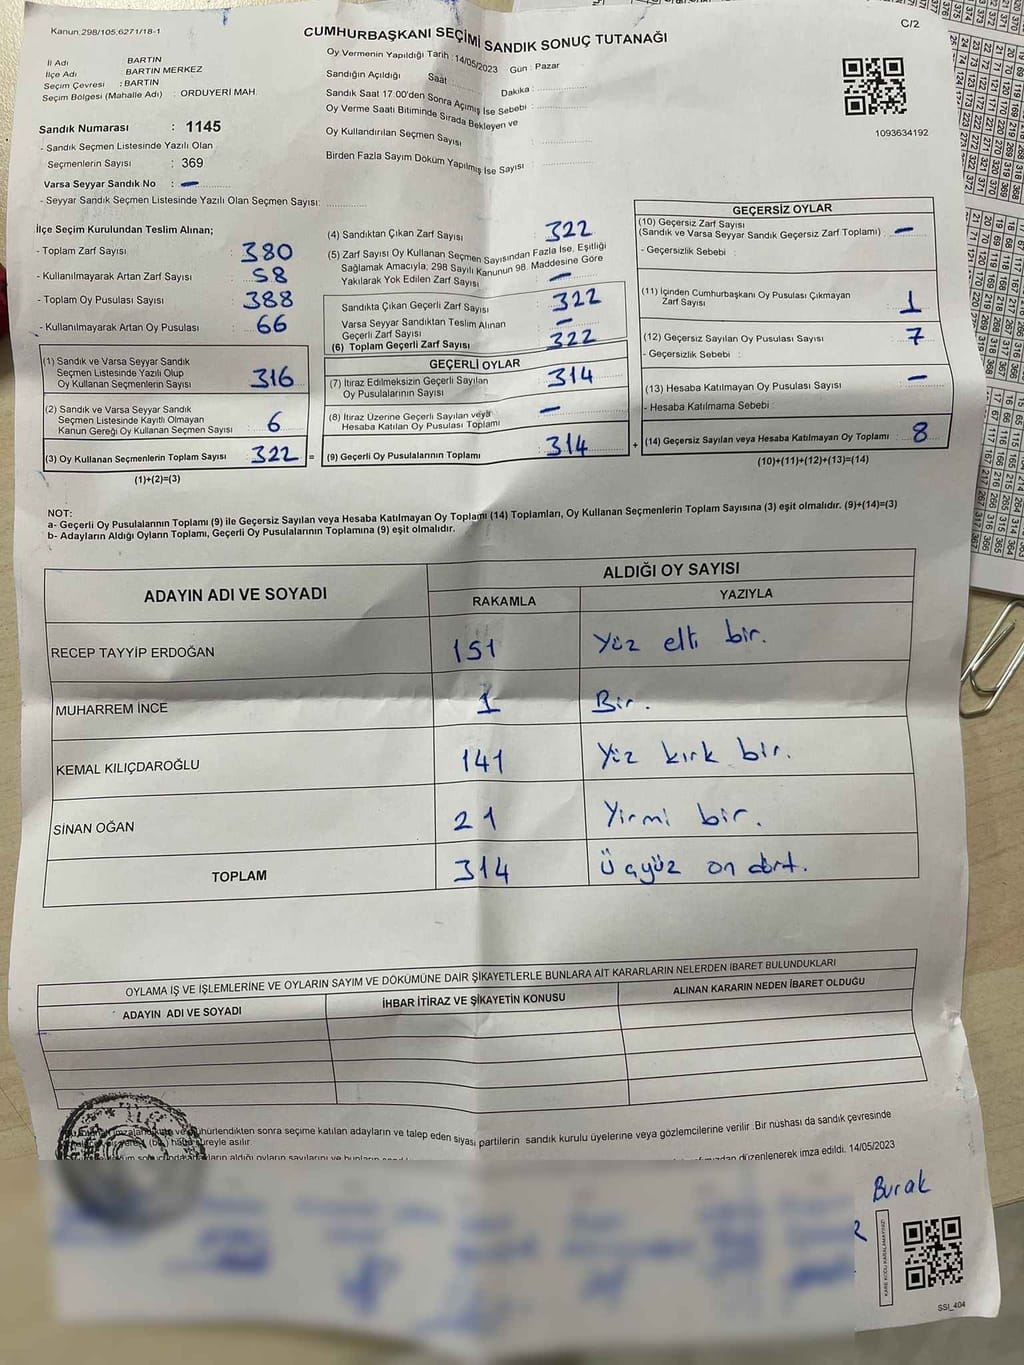 Kanun,298/105,6271/18-1
CUMHURBAŞKANI SEÇİMİ SANDIK SONUÇ TUTANAĞI
C/2
İl Adı BARTIN
İlçe Adı BARTIN MERKEZ
Seçim Çevresi : BARTIN
Seçim Bölgesi (Mahalle Adı) : ORDUYERİ MAH.
Oy Vermenin Yapıldığı Tarih : 14/05/2023 Gün : Pazar
Sandığın Açıldığı Saat : Dakika :
Sandık Saat 17.00'den Sonra Açımış İse Sebebi :
Oy Verme Saati Bitiminde Sırada Bekleyen ve
Oy Kullandırılan Seçmen Sayısı :
Birden Fazla Sayım Döküm Yapılmış İse Sayısı
1093634192
Sandık Numarası : 1145
- Sandık Seçmen Listesinde Yazılı Olan
Seçmenlerin Sayısı : 369
Varsa Seyyar Sandık No : -
- Seyyar Sandık Seçmen Listesinde Yazılı Olan Seçmen Sayısı:
İlçe Seçim Kurulundan Teslim Alınan;
- Toplam Zarf Sayısı : 380
- Kullanılmayarak Artan Zarf Sayısı : 58
- Toplam Oy Pusulası Sayısı : 388
- Kullanılmayarak Artan Oy Pusulası : 66
(1) Sandık ve Varsa Seyyar Sandık
Seçmen Listesinde Yazılı Olup
Oy Kullanan Seçmenlerin Sayısı : 316
(2) Sandık ve Varsa Seyyar Sandık
Seçmen Listesinde Kayıtlı Olmayan
Kanun Gereği Oy Kullanan Seçmen Sayısı : 6
(3) Oy Kullanan Seçmenlerin Toplam Sayısı : 322 =
(1)+(2)=(3)
(4) Sandıktan Çıkan Zarf Sayısı : 322
(5) Zarf Sayısı Oy Kullanan Seçmen Sayısından Fazla İse, Eşitliği
Sağlamak Amacıyla; 298 Sayılı Kanunun 98. Maddesine Göre
Yakılarak Yok Edilen Zarf Sayısı : -
Sandıkta Çıkan Geçerli Zarf Sayısı : 322
Varsa Seyyar Sandıktan Teslim Alınan
Geçerli Zarf Sayısı : -
(6) Toplam Geçerli Zarf Sayısı : 322
GEÇERLİ OYLAR
(7) İtiraz Edilmeksizin Geçerli Sayılan
Oy Pusulalarının Sayısı : 314
(8) İtiraz Üzerine Geçerli Sayılan veya
Hesaba Katılan Oy Pusulası Toplamı : -
(9) Geçerli Oy Pusulalarının Toplamı : 314 +
GEÇERSİZ OYLAR
(10) Geçersiz Zarf Sayısı
(Sandık ve Varsa Seyyar Sandık Geçersiz Zarf Toplamı) : -
- Geçersizlik Sebebi :
(11) İçinden Cumhurbaşkanı Oy Pusulası Çıkmayan
Zarf Sayısı : 1
(12) Geçersiz Sayılan Oy Pusulası Sayısı : 7
- Geçersizlik Sebebi :
(13) Hesaba Katılmayan Oy Pusulası Sayısı : -
- Hesaba Katılmama Sebebi :
(14) Geçersiz Sayılan veya Hesaba Katılmayan Oy Toplamı : 8
(10)+(11)+(12)+(13)=(14)
NOT:
a- Geçerli Oy Pusulalarının Toplamı (9) ile Geçersiz Sayılan veya Hesaba Katılmayan Oy Toplamı (14) Toplamları, Oy Kullanan Seçmenlerin Toplam Sayısına (3) eşit olmalıdır. (9)+(14)=(3)
b- Adayların Aldığı Oyların Toplamı, Geçerli Oy Pusulalarının Toplamına (9) eşit olmalıdır.
ADAYIN ADI VE SOYADI
ALDIĞI OY SAYISI
RAKAMLA YAZIYLA
RECEP TAYYİP ERDOĞAN 151 Yüz elli bir.
MUHARREM İNCE 1 Bir.
KEMAL KILIÇDAROĞLU 141 Yüz kırk bir.
SİNAN OĞAN 21 Yirmi bir.
TOPLAM 314 Üçyüz on dört.
OYLAMA İŞ VE İŞLEMLERİNE VE OYLARIN SAYIM VE DÖKÜMÜNE DAİR ŞİKAYETLERLE BUNLARA AİT KARARLARIN NELERDEN İBARET BULUNDUKLARI
ADAYIN ADI VE SOYADI İHBAR İTİRAZ VE ŞİKAYETİN KONUSU ALINAN KARARIN NEDEN İBARET OLDUĞU
mühürlendikten sonra seçime katılan adayların ve talep eden siyasi partilerin sandık kurulu üyelerine veya gözlemcilerine verilir. Bir nüshası da sandık çevresinde
hafta süreyle asılır.
düzenlenerek imza edildi. 14/05/2023
Burak
KARE KODU KARALAMAYINIZ!
SSI_404